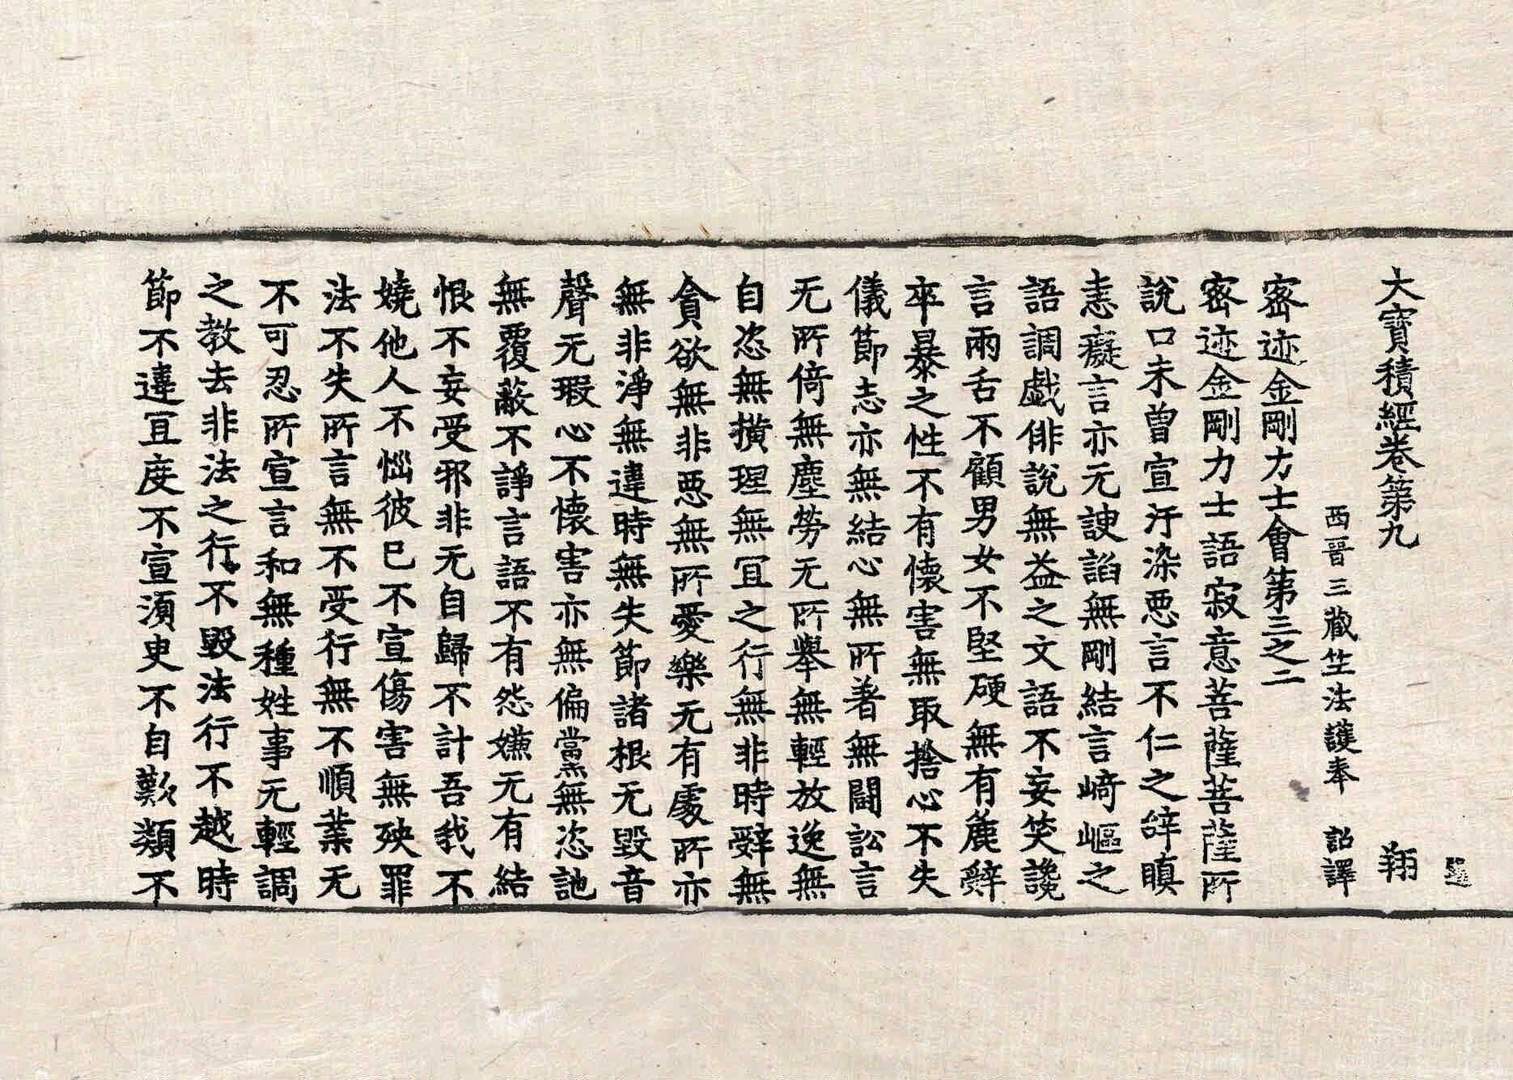 大寶積經卷第九 翔
西晉三藏竺法護奉 詔譯
密迹金剛力士會第三之二
密迹金剛力士語寂意菩薩菩薩所
說口未曾宣汙染惡言不仁之辝瞋
恚癡言亦无諛諂無剛結言崎嶇之
語調戲俳說無益之文語不妄笑讒
言兩舌不顧男女不堅硬無有麁辤
卒暴之性不有懷害無取捨心不失
儀節志亦無結心無所著無鬪訟言
无所倚無塵勞无所舉無輕放逸無
自恣無撗理無冝之行無非時辤無
貪欲無非惡無所愛樂无有處所亦
無非淨無違時無失節諸根无毀音
聲无瑕心不懷害亦無偏黨無恣訑
無覆蔽不諍言語不有怨嫌无有結
恨不妄受邪非无自歸不計吾我不
嬈他人不惱彼已不宣傷害無殃罪
法不失所言無不受行無不順業无
不可忍所宣言和無種姓事无輕調
之教去非法之行不毀法行不越時
節不違冝庋不宣湏臾不自歎類不